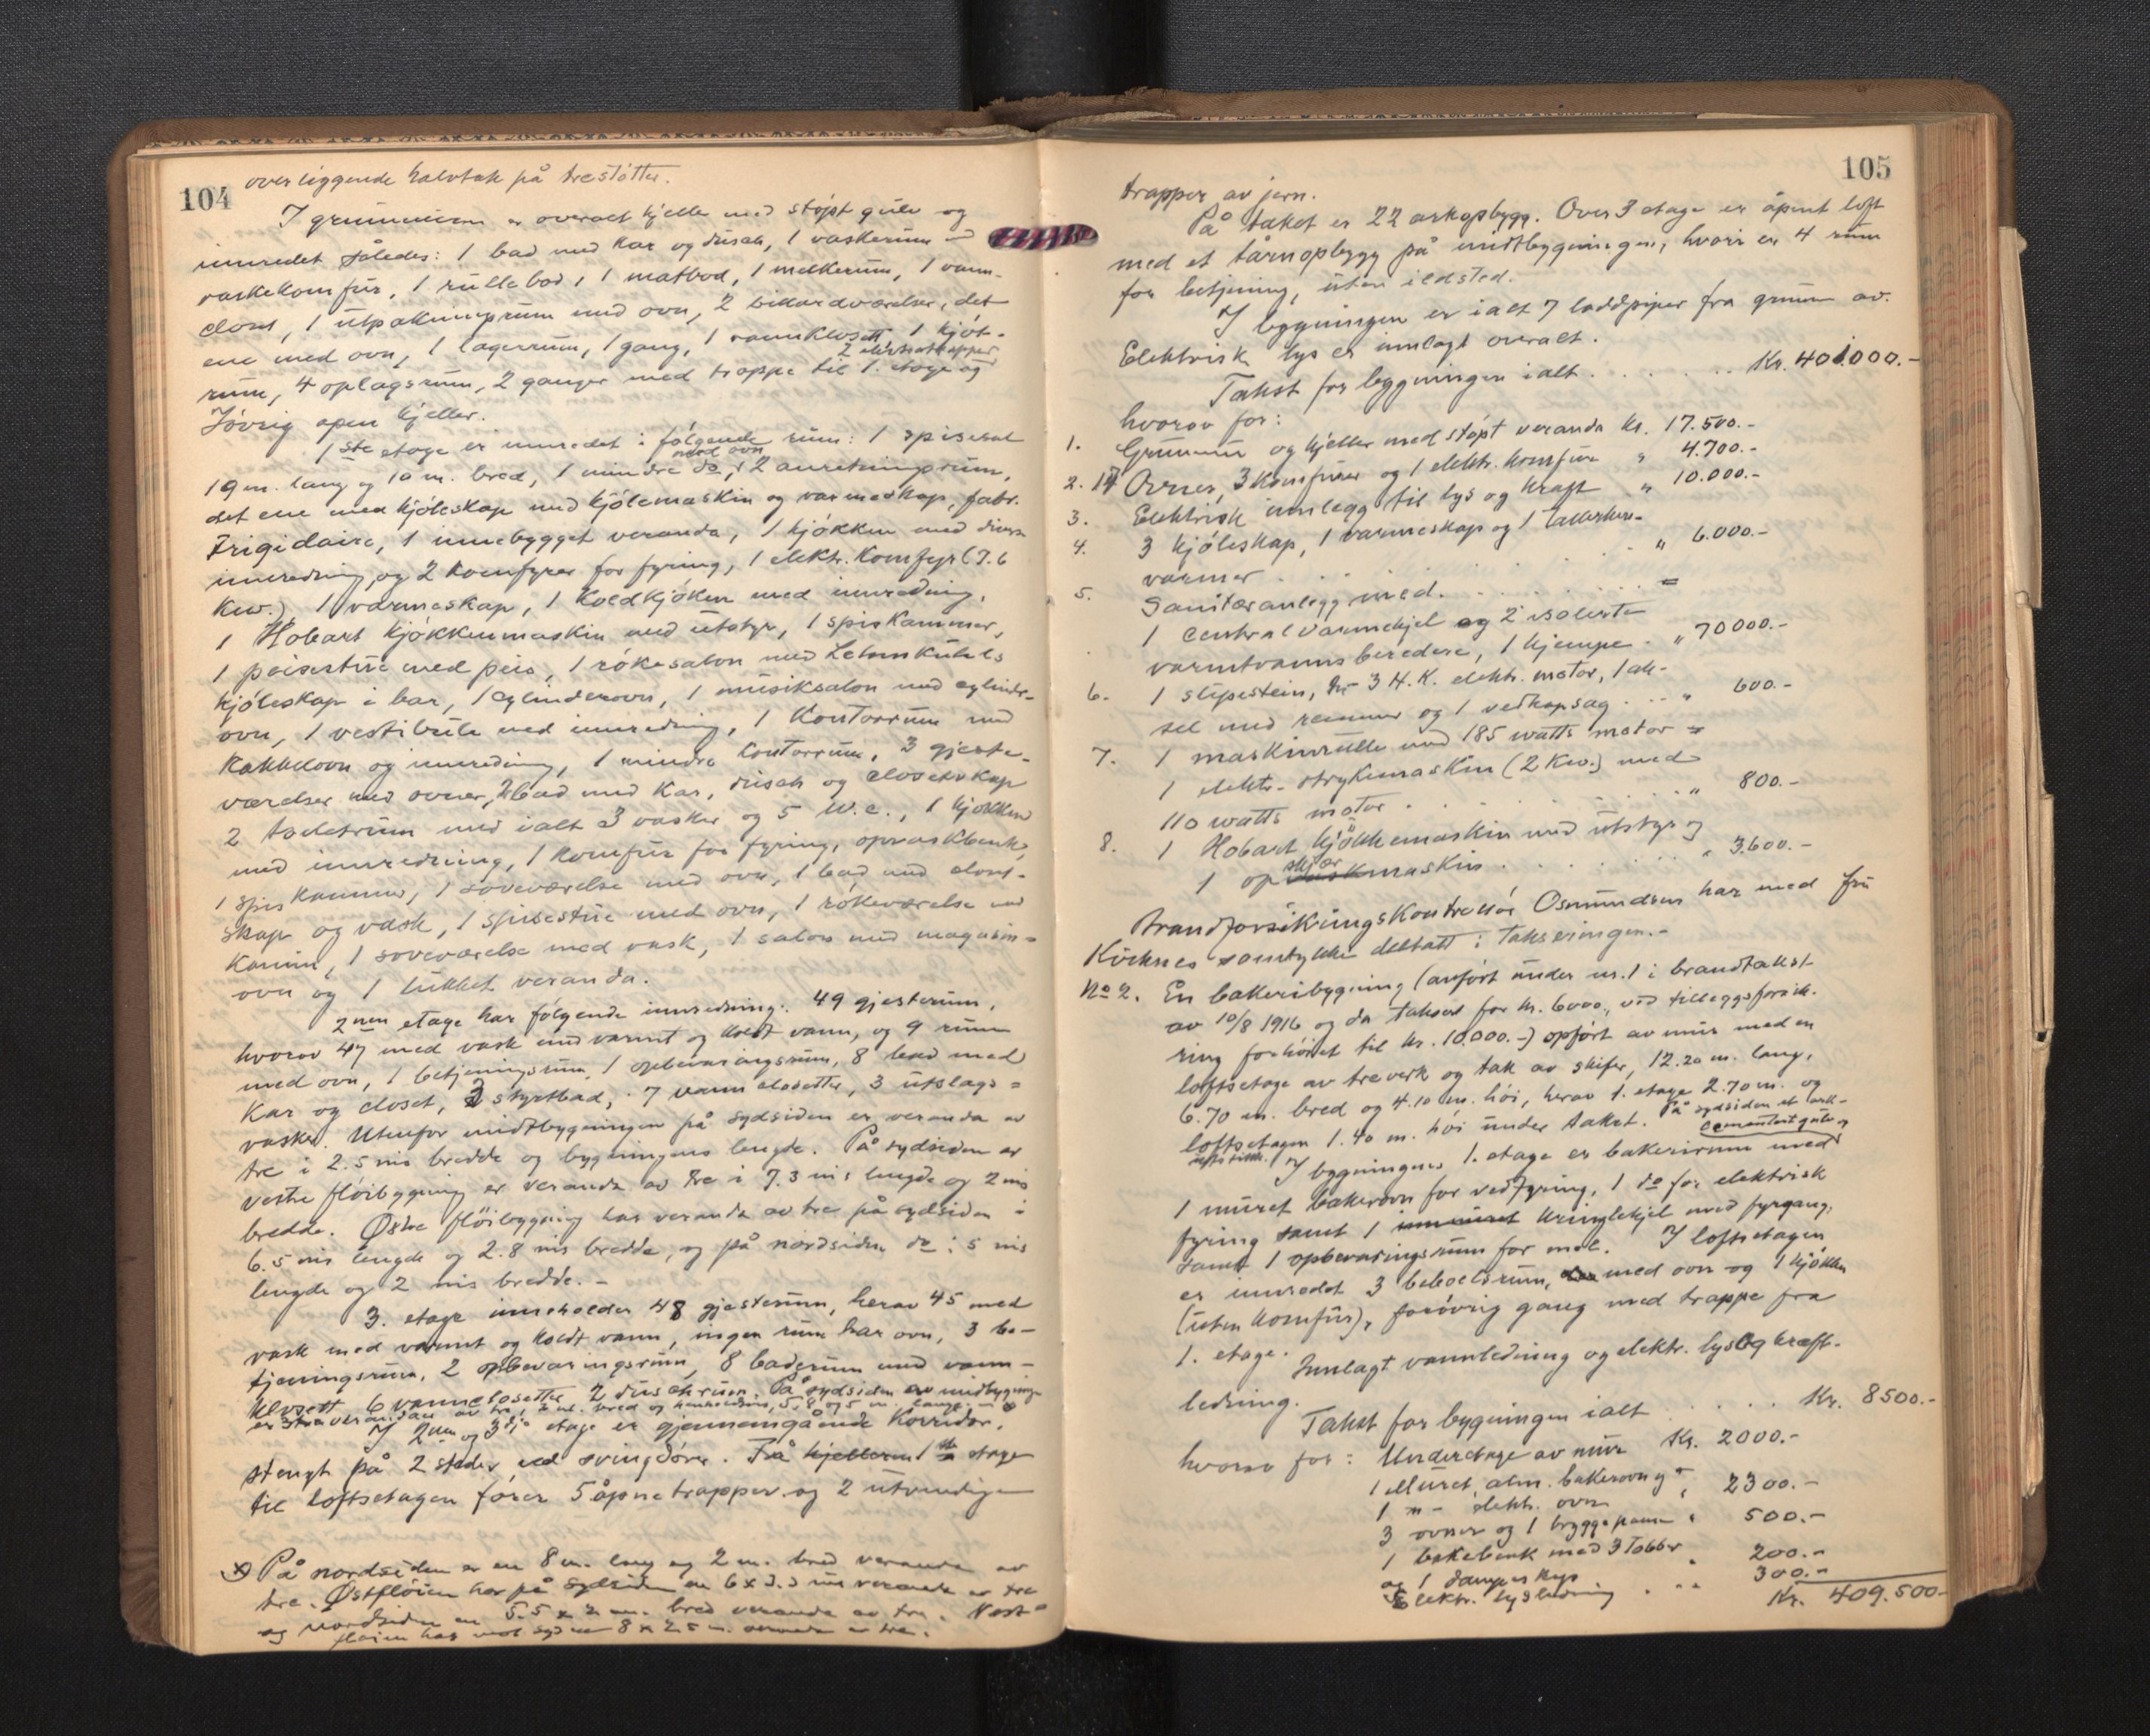 104
overliggende halvtak på trestøtter.
I grunnmuren er overalt kjeller med støpt gulv og
innredet således: 1 bad med kar og dusch, 1 vaskerum med
vaskekomfur, 1 rullebod, 1 matbod, 1 melkerum, 1 vann-
closet, 1 utpakningsrum med ovn, 2 det
ene med ovn, 1 lagerrum, 1 gang, 1 vannklosett, 1 kjøt-
rum, 4 oplagsrum, 2 ganger med trappe til 1. etage og
Iøvrig åpen kjeller.
1ste etage er innredet i følgende rum: 1 spisesal
19 m. lang og 10 m. bred, 1 mindre do med ovn, 2 anretningsrum,
det ene med kjøleskap med kjølemaskin og varmeskap, fabr.
Frigidaire, 1 innebygget veranda, 1 kjøkken med divers
innredning, og 2 komfyrer for fyring, 1 elektr. komfyr (7.6
kw.) 1 varmeskap, 1 koldkjøken med innredning,
1 Hobart kjøkkenmaskin med utstyr, 1 spiskammer,
1 peisestue med peis, 1 røkesalon med
kjøleskap i bar, 1 cylinderovn, 1 musiksalon med cylinder-
ovn, 1 vestibule med innredning, 1 kontorrum med
kakkelovn og innredning, 1 mindre kontorrum, 3 gjeste-
værelser med ovner, bad med kar, dusch og closetskap
2 toiletrum med ialt 3 vasker og 5 W.C., 1 kjøkken
med innredning, 1 komfur for fyring, opvaskbenk,
1 spiskammer, 1 soveværelse med ovn, 1 bad med closet-
skap og vask, 1 spisestue med ovn, 1 røkeværelse med
kamin, 1 soveværelse med vask, 1 salon med magasin-
ovn og 1 lukket veranda.
2nen etage har følgende innredning: 49 gjesterum,
hvorav 47 med vask med varmt og koldt vann, og 9 rum
med ovn, 1 betjeningsrum, 1 opbevaringsrum, 8 bad med
kar og closet, 3 styrtbad, 7 vannclosetter, 3 utslags-
vasker. Utenfor midtbygningen på sydsiden er veranda av
tre i 2.5 ms bredde og bygningens lengde. På sydsiden av
vestre fløibygning er veranda av tre i 7.3 ms lengde og 2 ms
bredde. Østre fløibygning har veranda av tre på sydsiden i
6.5 ms lengde og 2.8 ms bredde, og på nordsiden do i 5 ms
lengde og 2 ms bredde. -
3. etage inneholder 48 gjesterum, herav 45 med
vask med varmt og koldt vann, ingen rum har ovn, 3 be-
tjeningsrum, 2 opbevaringsrum, 8 baderum med vann-
klosett 6 vannclosetter 2 duschrum. På sydsiden av midtbygningen
er 3 tre verandaer av tre, 2 m. bred og henholdsvis 5, 8 og 5 m. lange. -
I 2nen og 3dje etage er gjennemgående korridor,
stengt på 2 steder ved svingdører. Fra kjelleren 1ste etage
til loftsetagen fører 5 åpne trapper og 2 utvendige
x) På nordsiden er en 8 m. lang og 2 m. bred veranda av
tre. Østfløien har på sydsiden en 6 x 3.5 ms veranda av tre
og nordsiden en 5.5 x 2 m. bred veranda av tre. Vest-
fløien har mot syd en 8 x 2.5 m. veranda av tre.
105
trapper av jern.
På taket er 22 arkopbygg. Over 3 etage er åpent loft
med et tårnopbygg på midtbygningen, hvori er 4 rum
for betjening, uten ildsted.
I bygningen er ialt 7 loddpiper fra grunn av.
Elektrisk lys er innlagt overalt.
Takst for bygningen ialt . . . . . . Kr. 401.000.-
hvorav for:
1. Grunnmur og kjeller med støpt veranda kr. 17.500.-
2. 17 Ovner, 3 komfurer og 1 elektr. komfur " 4.700.-
3. Elektrisk innlegg til lys og kraft " 10.000.-
4. 3 kjøleskap, 1 varmeskap og 1 tallerken-
varmer . . . . " 6.000.-
5. Sanitæranlegg med . . . . =
1 centralvarmekjel og 2 isolerte
varmtvannsberedere, 1 kjempe - " 70000.-
6. 1 slipestein, 3 H.K. elektr. motor, 1 ak-
sel med remmer og 1 vedkapsag . . . " 600.-
7. 1 maskinrulle med 185 watts motor =
1 elektr. strykemaskin (2 Kw.) med
110 watts motor . . . . . " 800.-
8. 1 Hobart kjøkkemaskin med utstyr og
1 opskjærmaskin . . . . . " 3.600.-
Brandforsikringskontrollør Osmundsen har med fru
Kviknes samtykke deltatt i takseringen.-
No 2. En bakeribygning (anført under nr. 1 i brandtakst
av 10/8 1916 og da taksert for kr. 6000., ved tilleggsforsik-
ring forhøiet til kr. 10.000.-) opført av mur med en
loftsetage av treverk og tak av skifer, 12.20 m. lang,
6.70 m. bred og 4.10 m. høi, herav 1. etage 2.70 m. og
loftsetagen 1.40 m. høi under taket. På sydsiden et ark-
I bygningens 1. etage er bakerirum med cementert gulv og
1 muret bakerovn for vedfyring, 1 do for elektrisk
fyring samt 1 innmuret kringlekjel med fyrgang,
samt 1 opbevaringsrum for mel. I loftsetagen
er innredet 3 beboelsrum, med ovn og 1 kjøkken
(uten komfur), forøvrig gang med trappe fra
1. etage.
Innlagt vannledning og elektr. lys og kraft-
ledning.
Takst for bygningen ialt . . . . . Kr. 8500.-
hvorav for: Underetage av mur Kr. 2000.-
1 Muret alm. bakerovn og
1 -"- elektr. ovn " 2300.-
3 ovner og 1 bryggepanne " 500.-
1 bakebenk med 3 Tobber
og 1 dampeskap " 200.-
Elektr. lysledning . . " 300.-
Kr. 409.500-